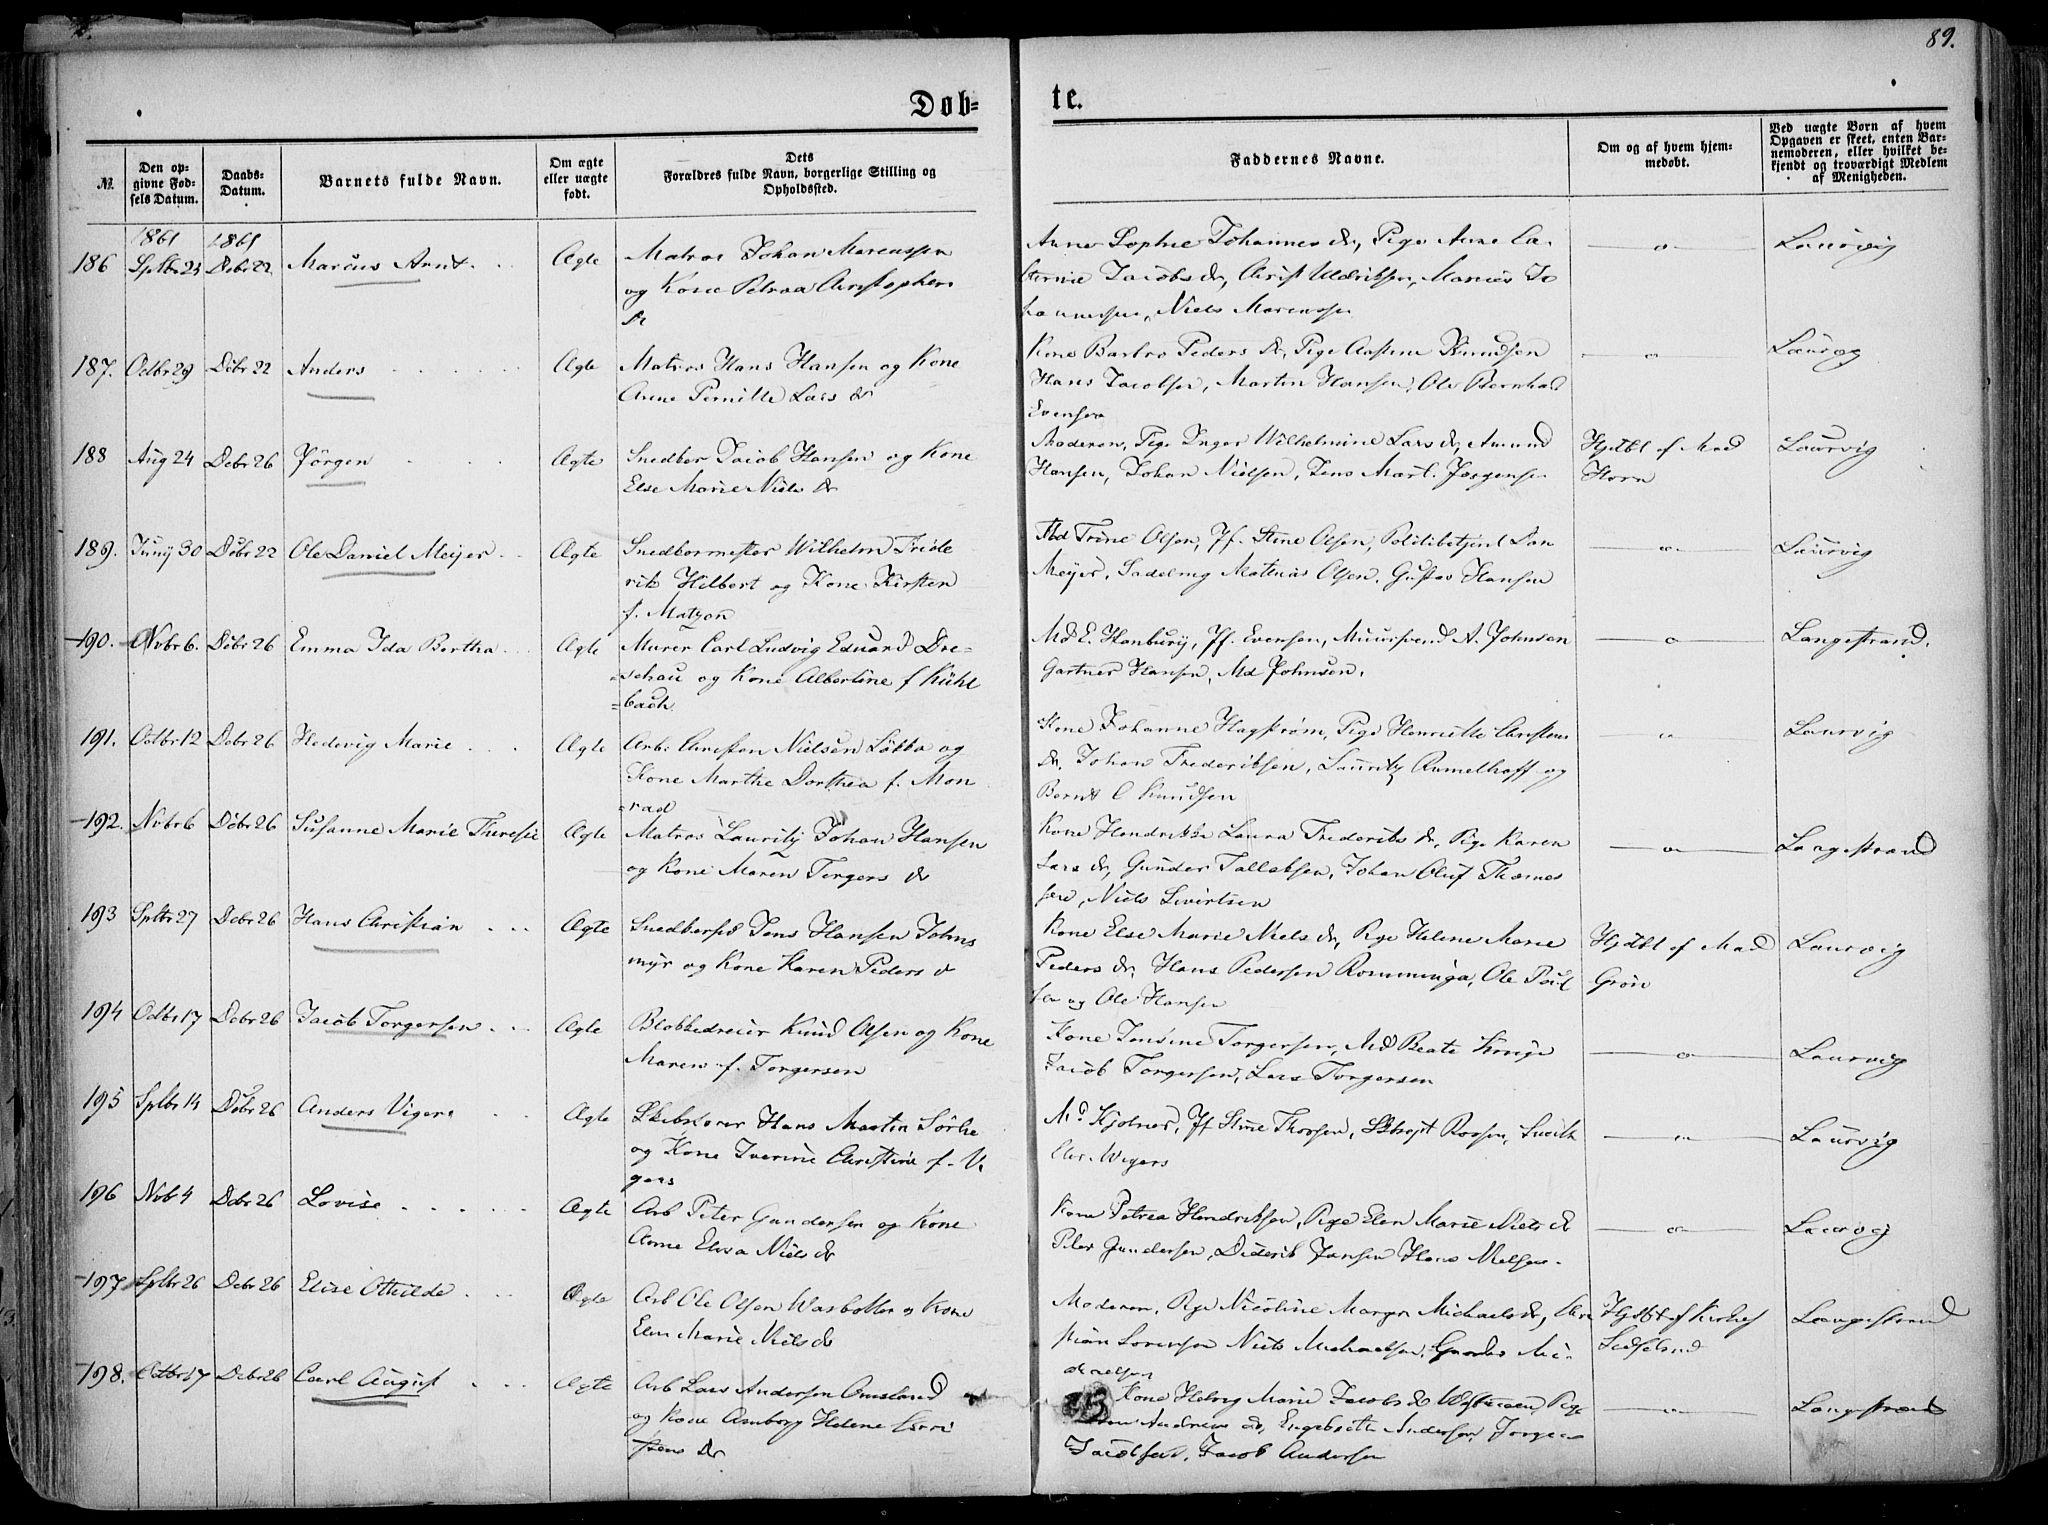 89.
Døb=
te.
№.
Den op-
givne Fød-
sels Datum.
Daabs-
Datum.
Barnets fulde Navn.
Om ægte
eller uægte
født.
Dets
Forældres fulde Navn, borgerlige Stilling og
Opholdssted.
Faddernes Navne.
Om og af hvem hjem-
medøbt.
Ved uægte Børn af hvem
Opgaven er skeet, enten Bar-
nemoderen, eller hvilket be-
kjendt og troværdigt Medlem
af Menigheden.
1861 1861
186 Sptbr 23 Debr 22 Marcus Arnt Ægte Matros Johan Marcussen
og Kone Petraa Christophers
dr
Anne Sophie Johannes dr, Pige Anne Ca-
Jacobs dr, Christ Marius Jo
hannessen, Niels Marcussen
Laurvig
187. Octbr 29 Debr 22 Anders Ægte Matros Hans Hansen og Kone
Anne Pernille Lars dr
Kone Barbro Peders dr, Pige Knudsen
Hans Jacobsen, Martin Hansen, Ole Bernhad
Evensen
Laurvig
188 Aug 24 Debr 26 Jörgen Ægte Snedker Jacob Hansen og Kone
Else Marie Niels dr
Moderen, Pige Inger Wilhelmine Lars dr, Amund
Hansen, Johan Nielsen, Jens Mart. Jørgensen
Hjdbt af Mad
Horn
Laurvig
189. Juny 30 Debr 22 Ole Daniel Meijer Ægte Snedkermester Wilhelm Fride
rik Hilbert og Kone Kirsten
f. Matzon
Md Trine Olsen, Jf. Stine Olsen, Politibetjent Dan
Meijer, Mathias Olsen, Gustav Hansen
Laurvig
190. Nvbr 6. Debr 26 Emma Ida Bertha Ægte Murer Carl Ludvig Eduard Dre-
=schau og Kone Albertine f Kühl
=bach
Md E. Hanbury, Jf. Evensen, Muursvend A. Johnsen
Gartner Hansen, Md Johnsen.
Langestrand.
191. Octbr 12 Debr 26 Hedevig Marie Ægte Arb: Christen Nielsen Løkka og
Kone Marthe Dorthea f. Mon
=rad
Kone Johanne Hagstrøm, Pige Henriette Christens
dr, Johan Frederiksen, Lauritz Rømelhoff og
Bernt C Knudsen
Laurvig
192. Nvbr 6 Debr 26 Susanne Marie Theresie Ægte Matros Lauritz Johan Hansen
og Kone Maren Torgers dr
Kone Hendrikke Laura Frederiks dr, Pige Karen
Lars dr, Gunder Tallaksen, Johan Oluf Thomes
sen, Niels Sivertsen
Langestrand
193 Sptbr 27 Debr 26 Hans Christian Ægte Snedkersvd Jens Hansen Johns
myr og Kone Karen Peders dr
Kone Else Marie Niels dr, Pige Helene Marie
Peders dr, Hans Pedersen Romminga, Ole Paul
sen og Ole Hansen
Hjdbt af Mad
Grøn
Laurvig
194 Octbr 17 Debr 26 Jacob Torgersen Ægte Blokkedreier Knud Olsen og Kone
Maren f. Torgersen
Kone Jensine Torgersen, Md Beate
Jacob Torgersen, Lars Torgersen
Laurvig
195 Sptbr 14 Debr 26 Anders Vigers Ægte Skibsfører Hans Martin Sörhe
og Kone Iverine Christine f. Vi
gers
Md Kjølner, Jf Stine Thorsen, Rossen,
Wigers
Laurvig
196 Nvb 4 Debr 26 Lovise Ægte Arb Peter Gundersen og Kone
Anne Elisa Niels dr
Kone Petrea Hendriksen, Pige Elen Marie Niels dr
Peter Gundersen, Diderik Jansen Hans Nielsen.
Laurvig
197 Sptbr 26 Debr 26 Elise Othilde Ægte Arb Ole Olsen og Kone
Elen Marie Niels dr
Moderen, Pige Nicoline Margr Michaels dr, Chri
stian Sorensen Niels Michaelsen, Gunder Mi-
chaelsen
Hjdbt af
Langestrand
198. Octbr 17 Debr 26 Carl August Ægte Arb Lars Andersen Omsland
og Kone Amborg Helene
dr
Kone Helvig Marie Jacobs dr Pige
Andrea dr, Engebreth Andersen, Jørgen
Jacobsen, Jacob Andersen
Langestrand